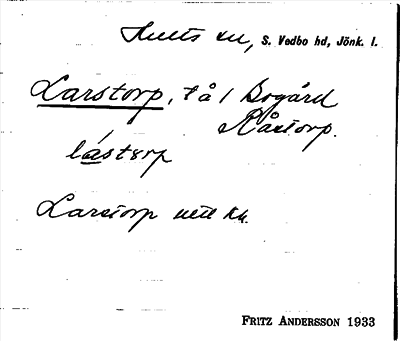 Hults sn, S. Vedbo hd, Jönk. l.
Larstorp, t å / Bogård
Råstorp.
lástorp
Larstorp utt kh.
FRITZ ANDERSSON 1933